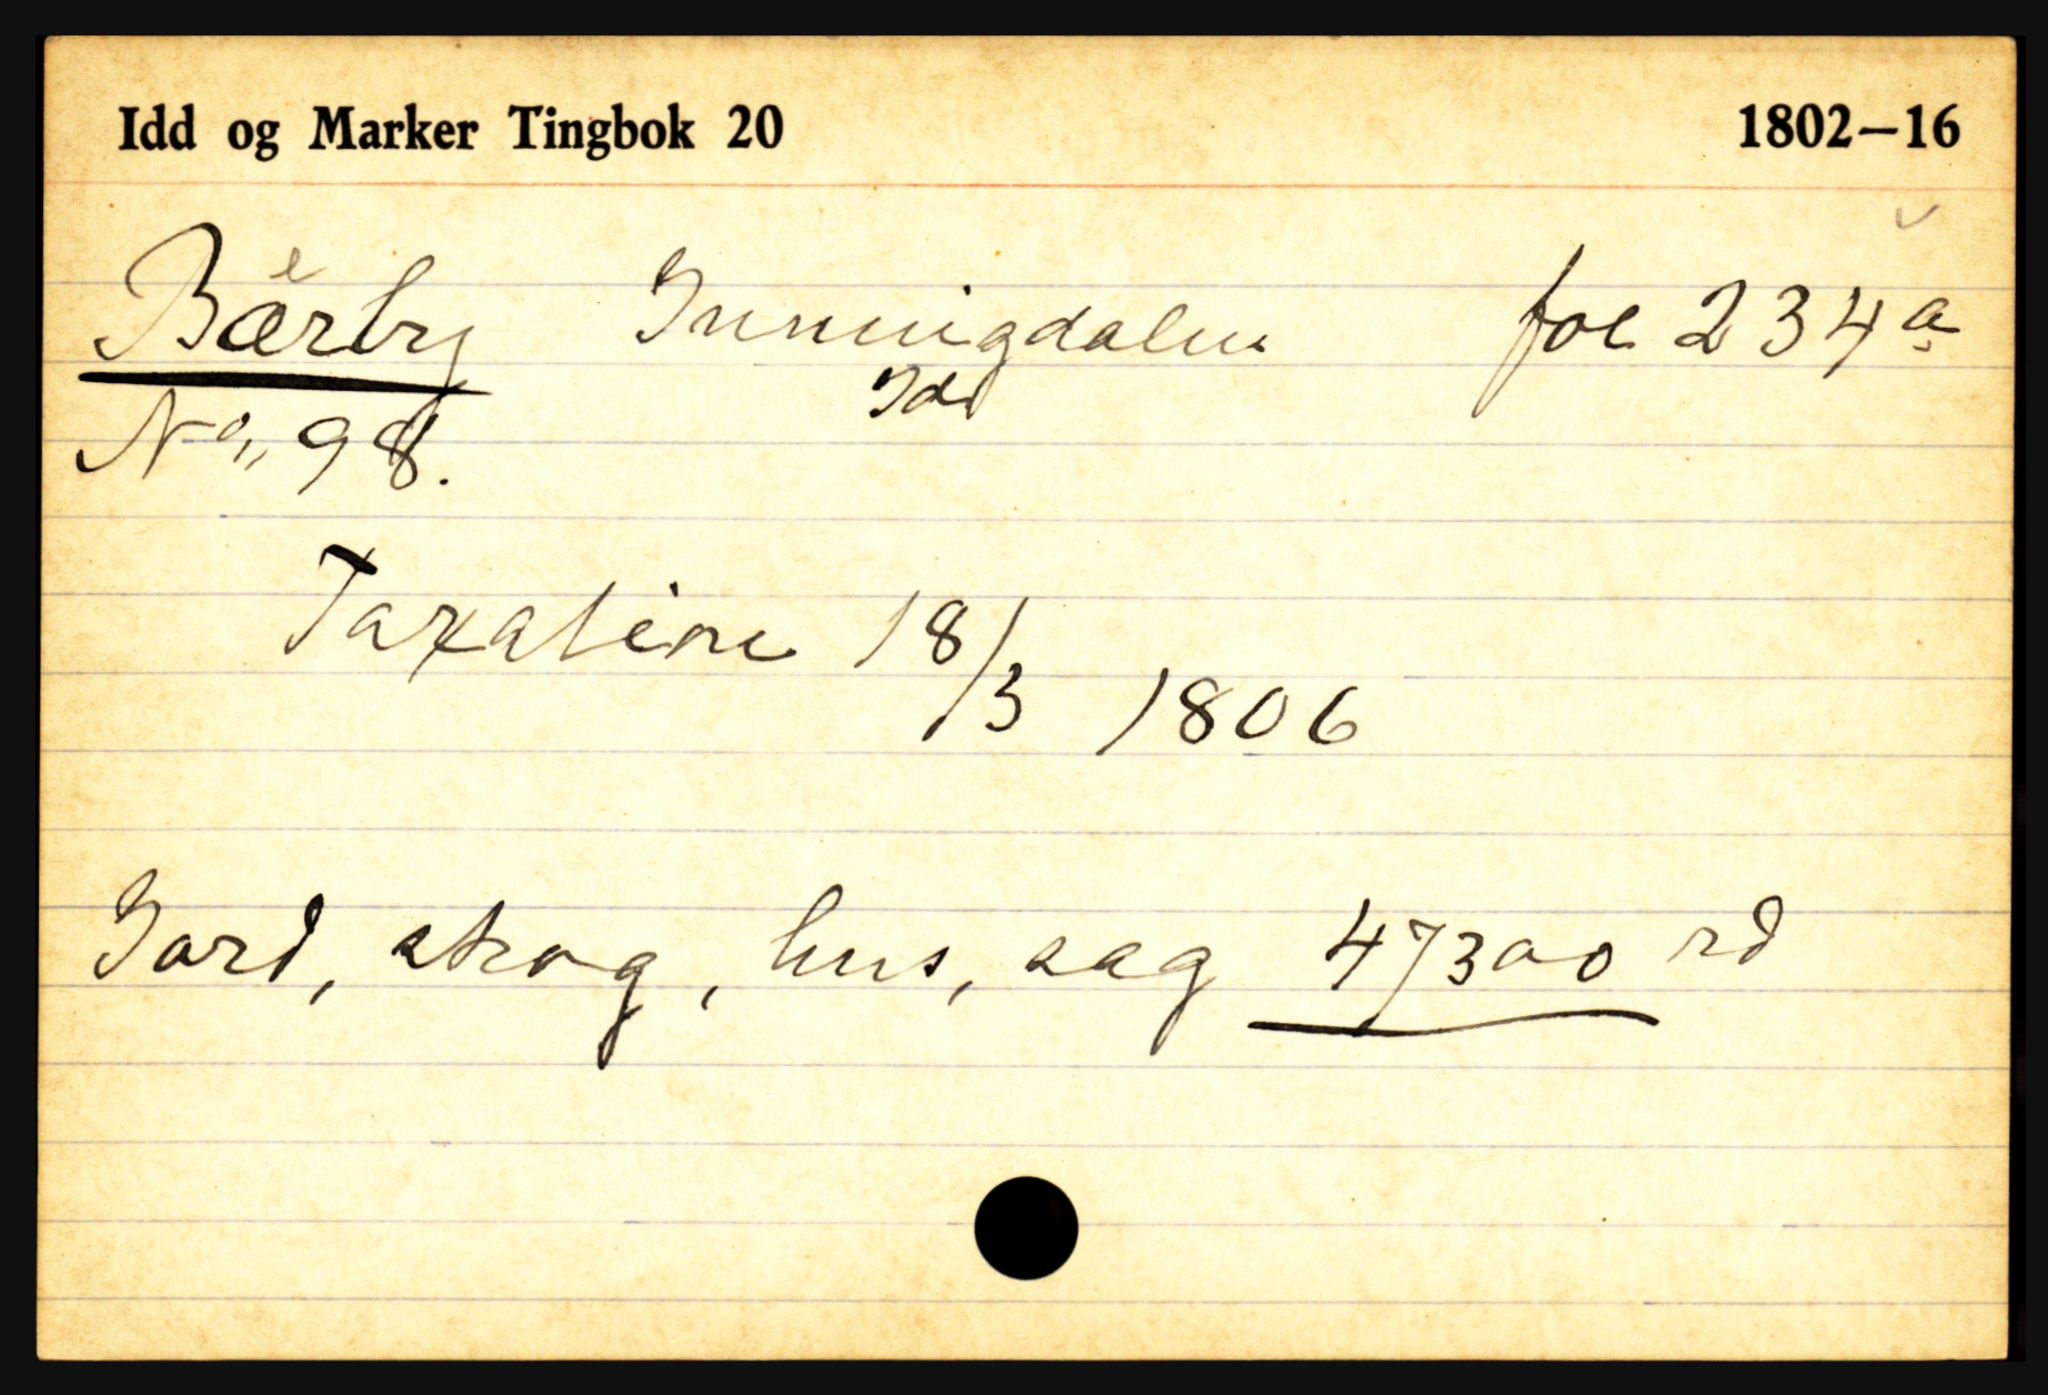 Idd og Marker Tingbok 20 1802–16
Bærby Inningdalen fol 234a
e
Idd
No, 98.
Taxation 18/3 1806
Jord, skog, hus, sag 47300 rd